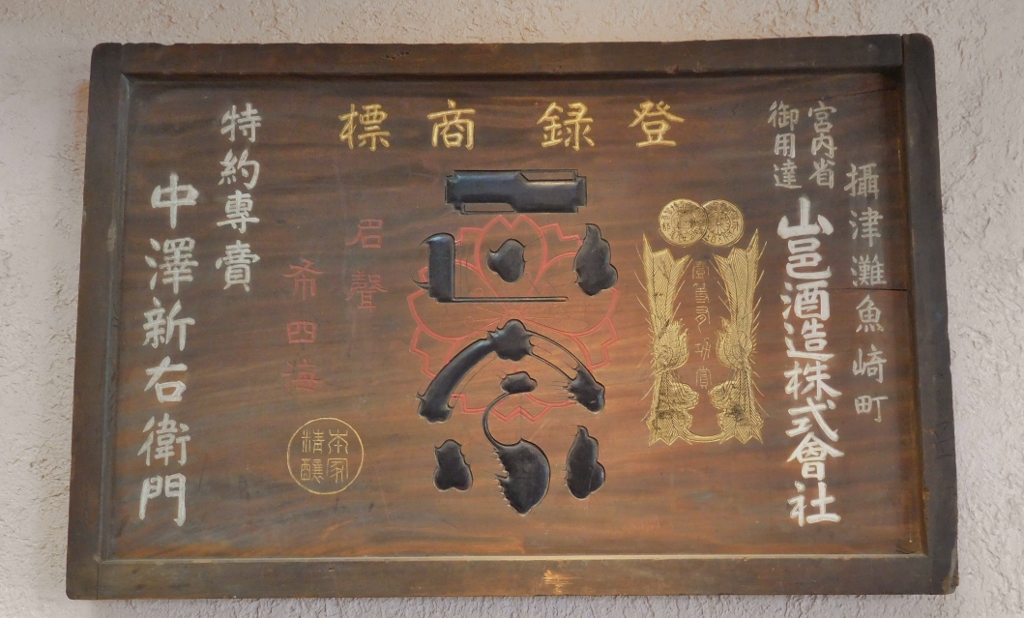 登録商標
攝津灘魚崎町
宮内省
御用達
山邑酒造株式會社
正宗
名聲
希四海
本家
精釀
特約專賣
中澤新右衛門